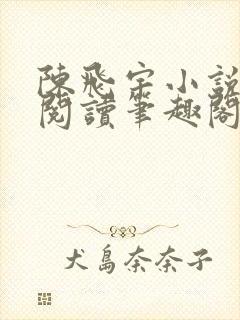 陳飛宇小說
閱讀筆趣閣
犬島奈奈子